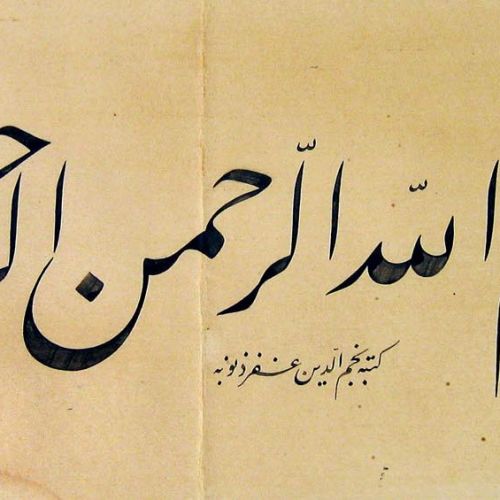 الله الرّحمن
كتبه نجم الدّين غفر ذنوبه